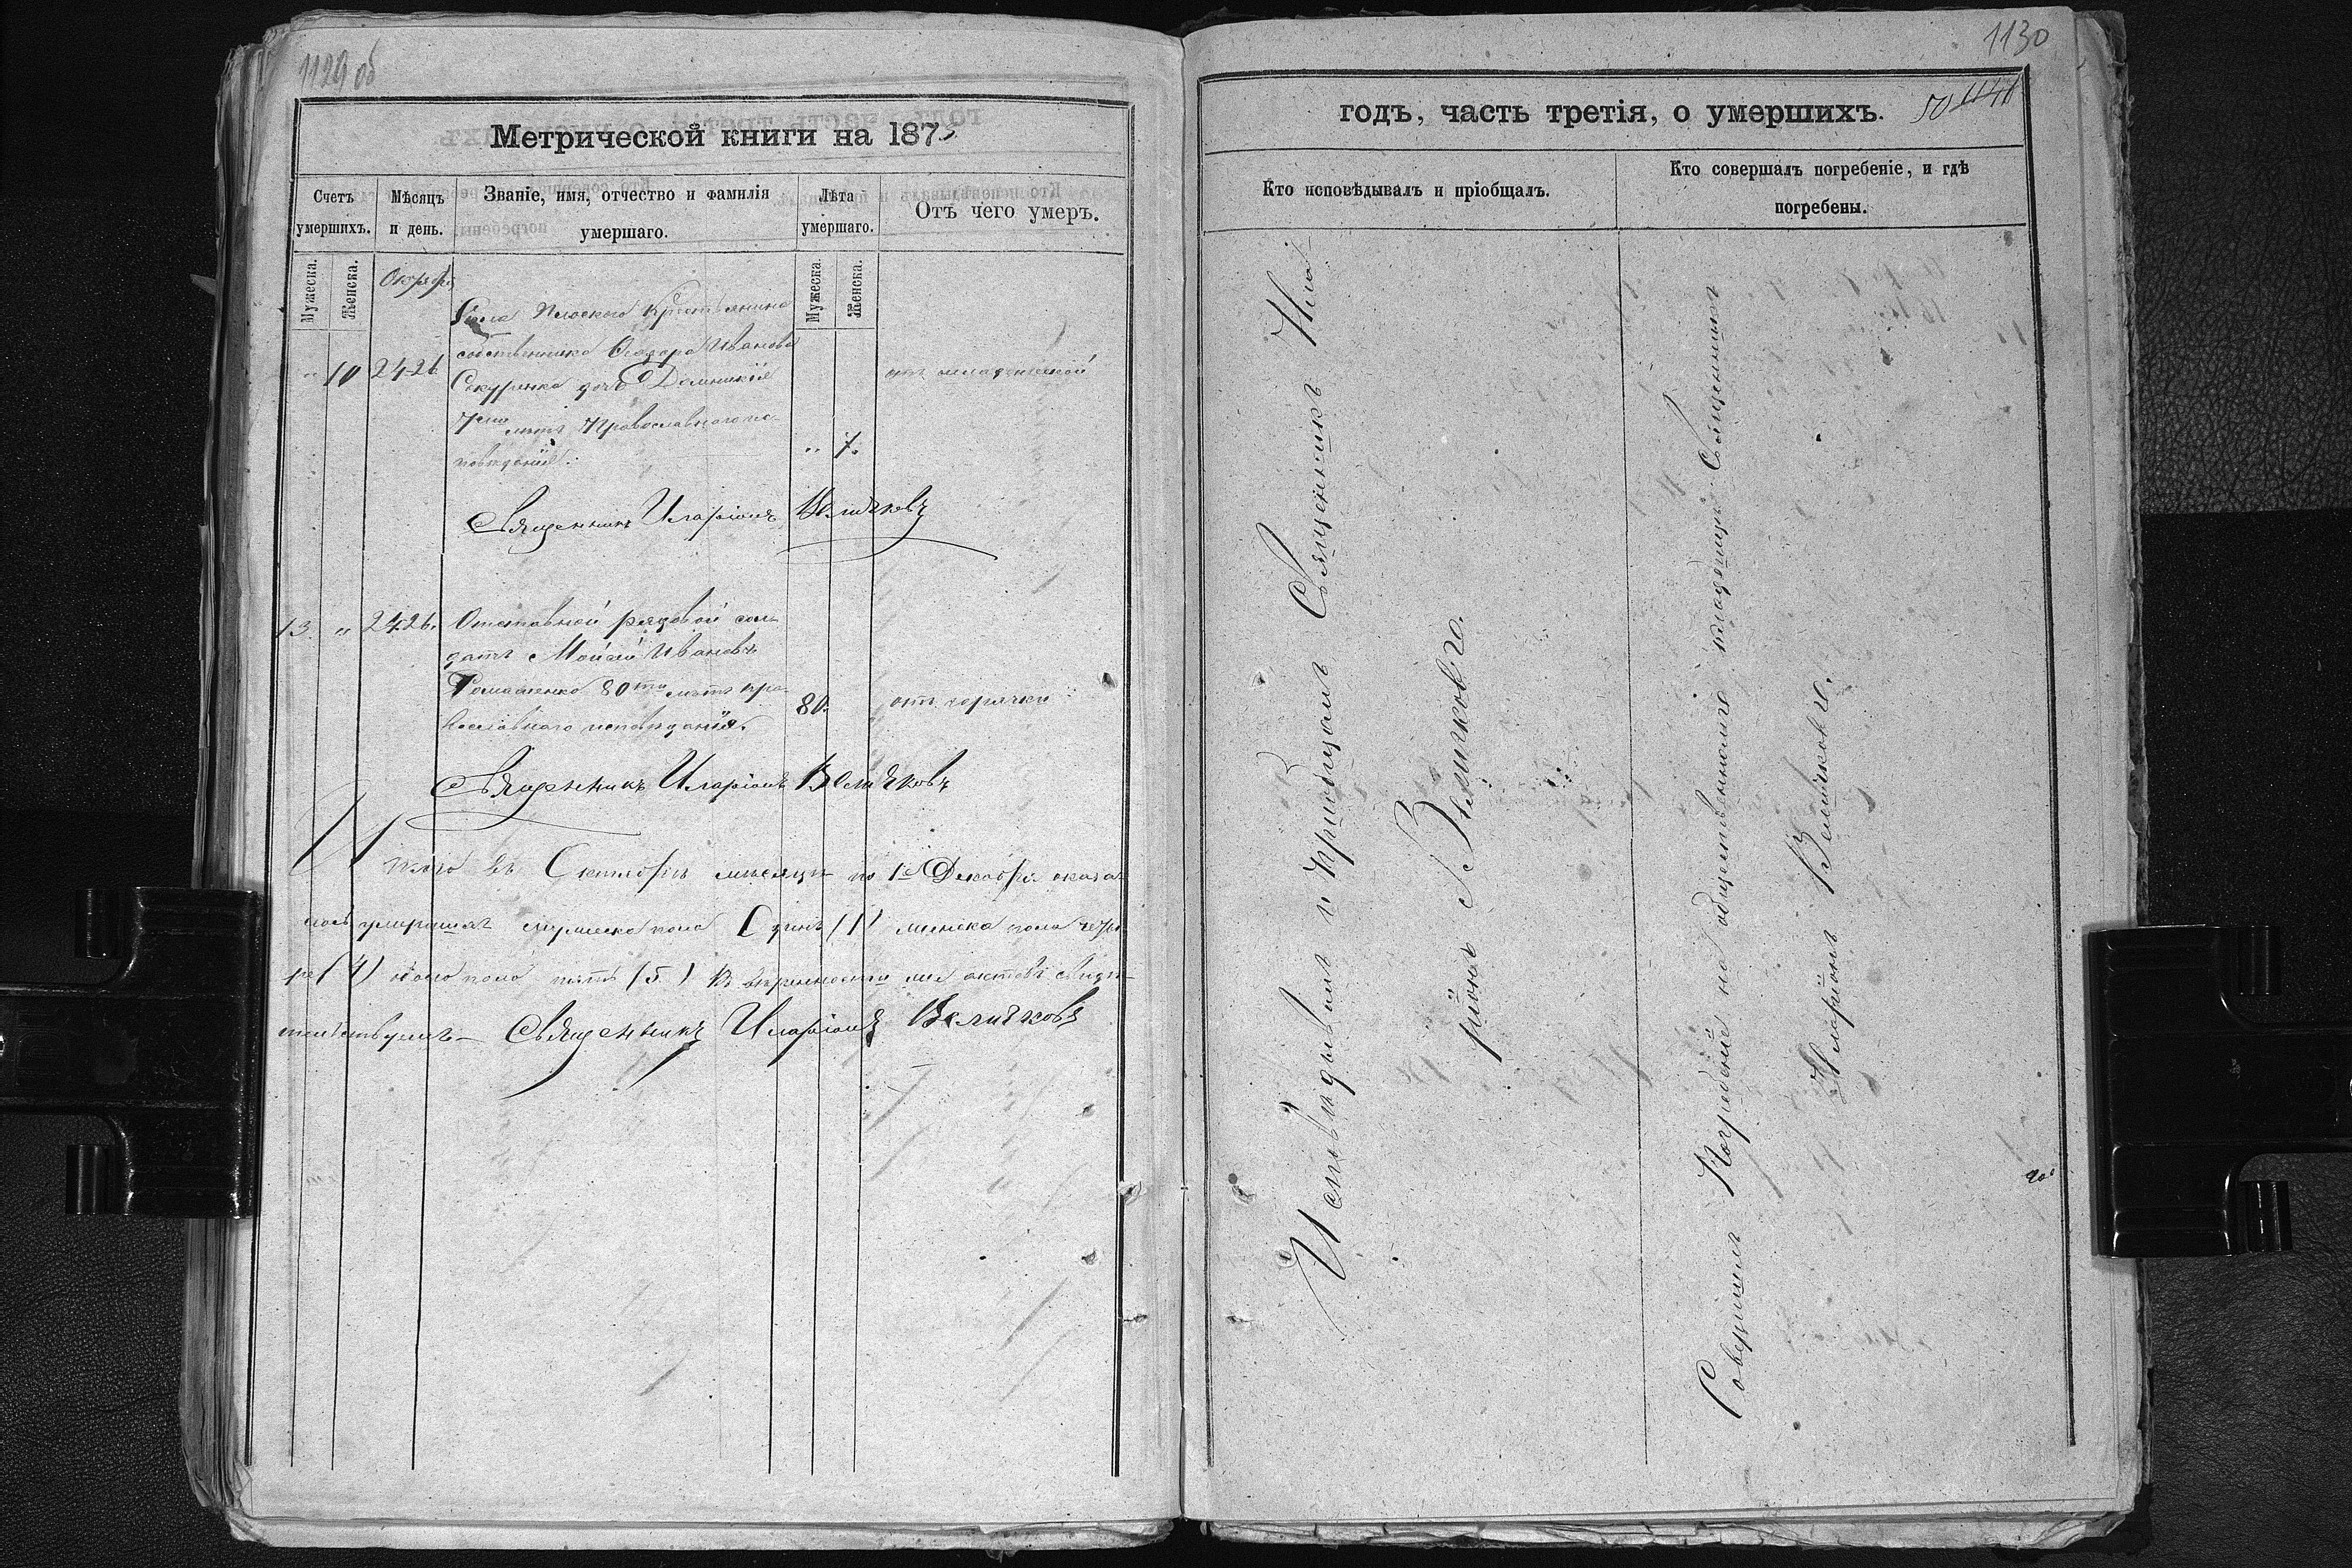 1129 об
Метрической книги на 187
Счетъ умершихъ.
Мѣсяцъ и день.
Званіе, имя, отчество и фамилія умершаго.
Лѣта умершаго.
Отъ чего умеръ.
Мужеска.
Женска.
Мужеска.
Женска.
Села Плоского Крестьянина
собственника Ѳеодора Иванова
" 10 24 26 дочь
7ми лѣтъ Православнаго ис-
повѣданія.
" 7.
Священникъ Иларіонъ Величковъ
13. " 24 26. Отставной рядовой сол-
датъ Мойсей Ивановъ
80ти лѣтъ пра-
вославнаго исповѣданія.
80. отъ горячки
Священникъ Иларіонъ Величковъ
Итого въ Октобрѣ мѣсяцѣ по 1е Декабря оказа-
лось умершихъ мужеска пола Одинъ (1) женска пола четы-
ре (4) обоего пола пять (5.) Въ вѣрности актовъ свидѣ-
тельствуемъ — Священникъ Иларіонъ Величковъ
1130
годъ, часть третія, о умершихъ.
50 1141
Кто исповѣдывалъ и пріобщалъ.
Кто совершалъ погребеніе, и гдѣ погребены.
Исповѣдывалъ и Пріобщалъ Священникъ Ила-
ріонъ Величковъ.
Совершилъ Погребеніе на общественномъ кладбищѣ Священникъ
Иларіонъ Величковъ.